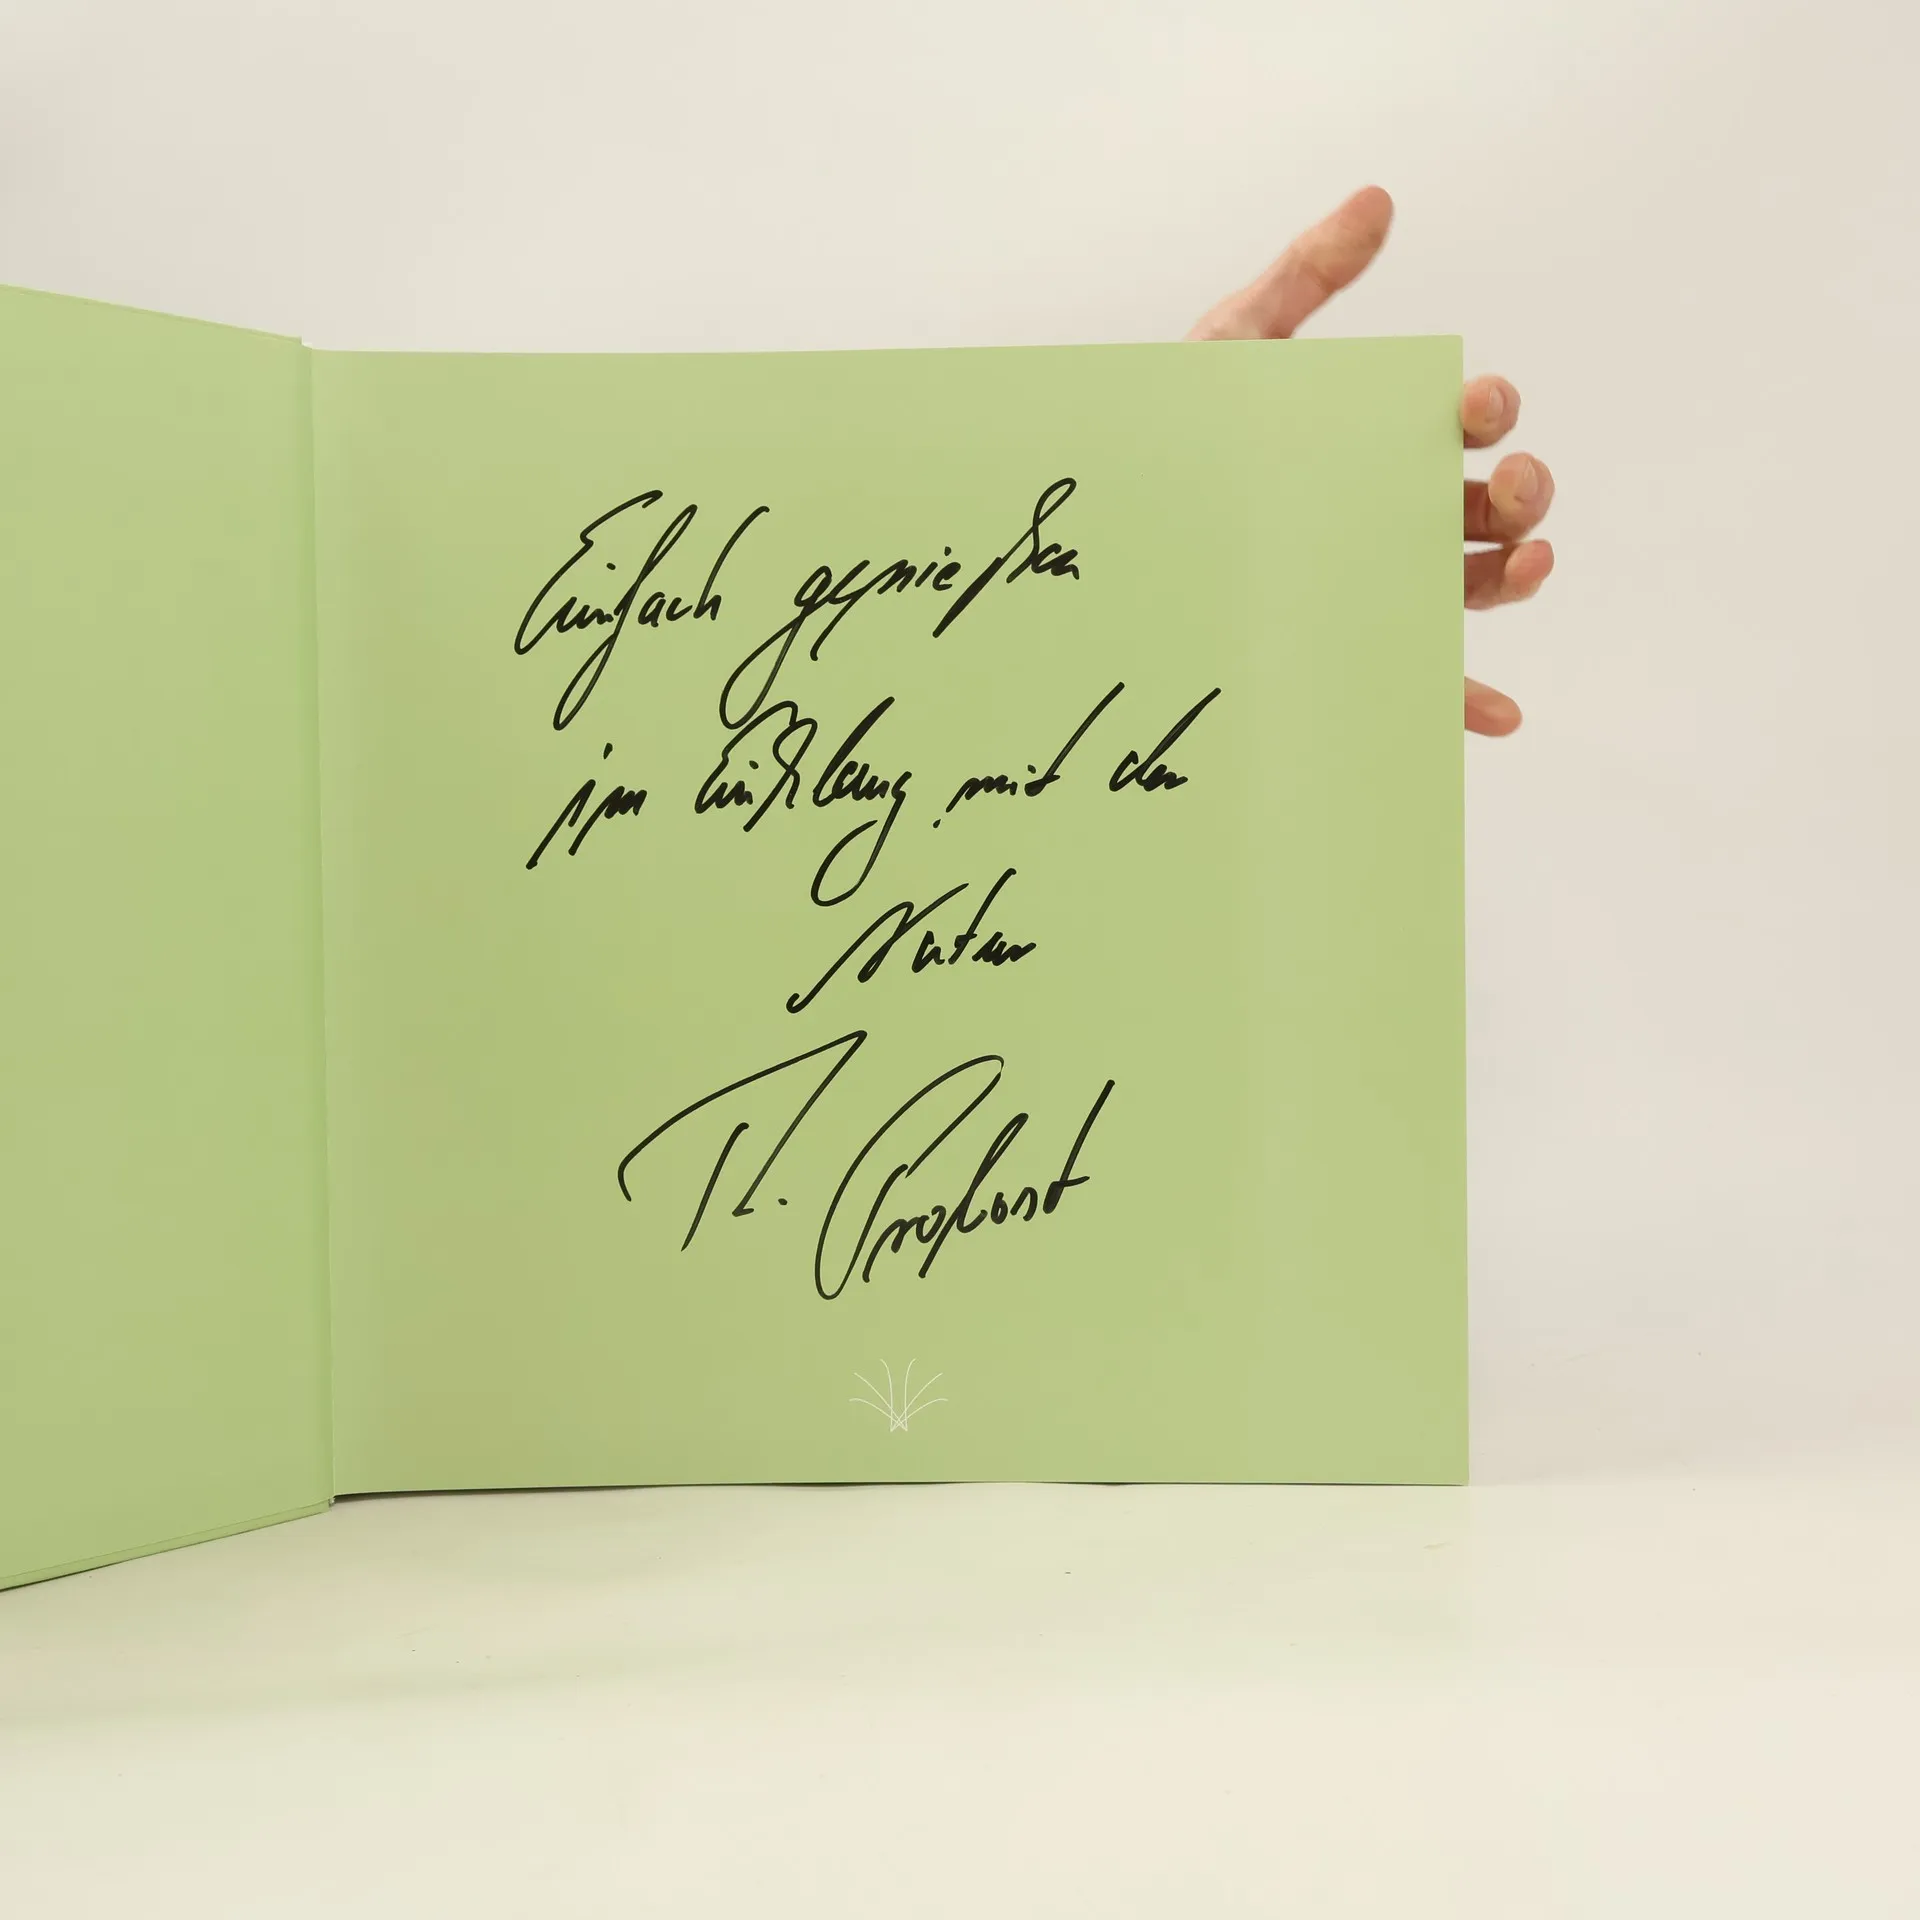 Einfach genießen
im Einklang mit der
Natur
Th. Propost